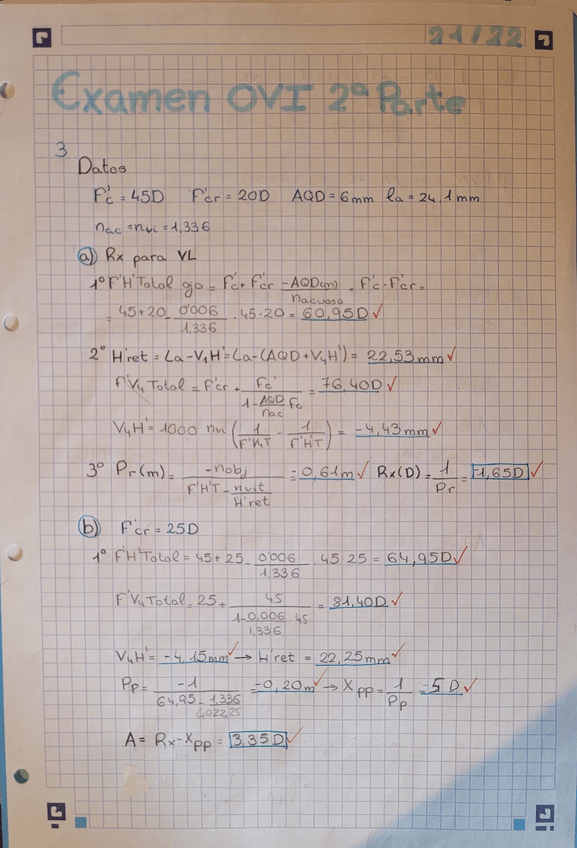 21/22
Examen OVI 2ª Parte
3
Datos
F'c = 45D F'cr = 20D AQD = 6mm la = 24,1mm
nac = nvi = 1,336
a) Rx para VL
1º F'H'Total ojo = F'c + F'cr - AQD(m)/nacuoso · F'c · F'cr =
= 45+20 - 0'006/1,336 · 45·20 = 60,95D ✓
2º H'ret = La - V1H' = La - (AQD + V4H') = 22,53mm ✓
F'V4 Total = F'cr + Fc'/(1 - AQD/nac Fc) = 76,40D ✓
V4H' = 1000 nvi (1/F'V4T - 1/F'H'T) = -4,43mm ✓
3º Pr(m) = -nobj/(F'H'T - nvit/H'ret) = -0,61m ✓ Rx(D) = 1/Pr = -1,65D ✓
b) F'cr = 25D
1º F'H'Total = 45 + 25 - 0'006/1,336 · 45·25 = 64,95D ✓
F'V4 Total = 25 + 45/(1 - 0,006/1,336 45) = 81,40D ✓
V4H' = -4,15mm ✓ → H'ret = 22,25mm ✓
Pp = -1/(64,95 - 1,336/0,02225) = -0,20m ✓ → Xpp = 1/Pp = -5D ✓
A = Rx - Xpp = 3.35D ✓